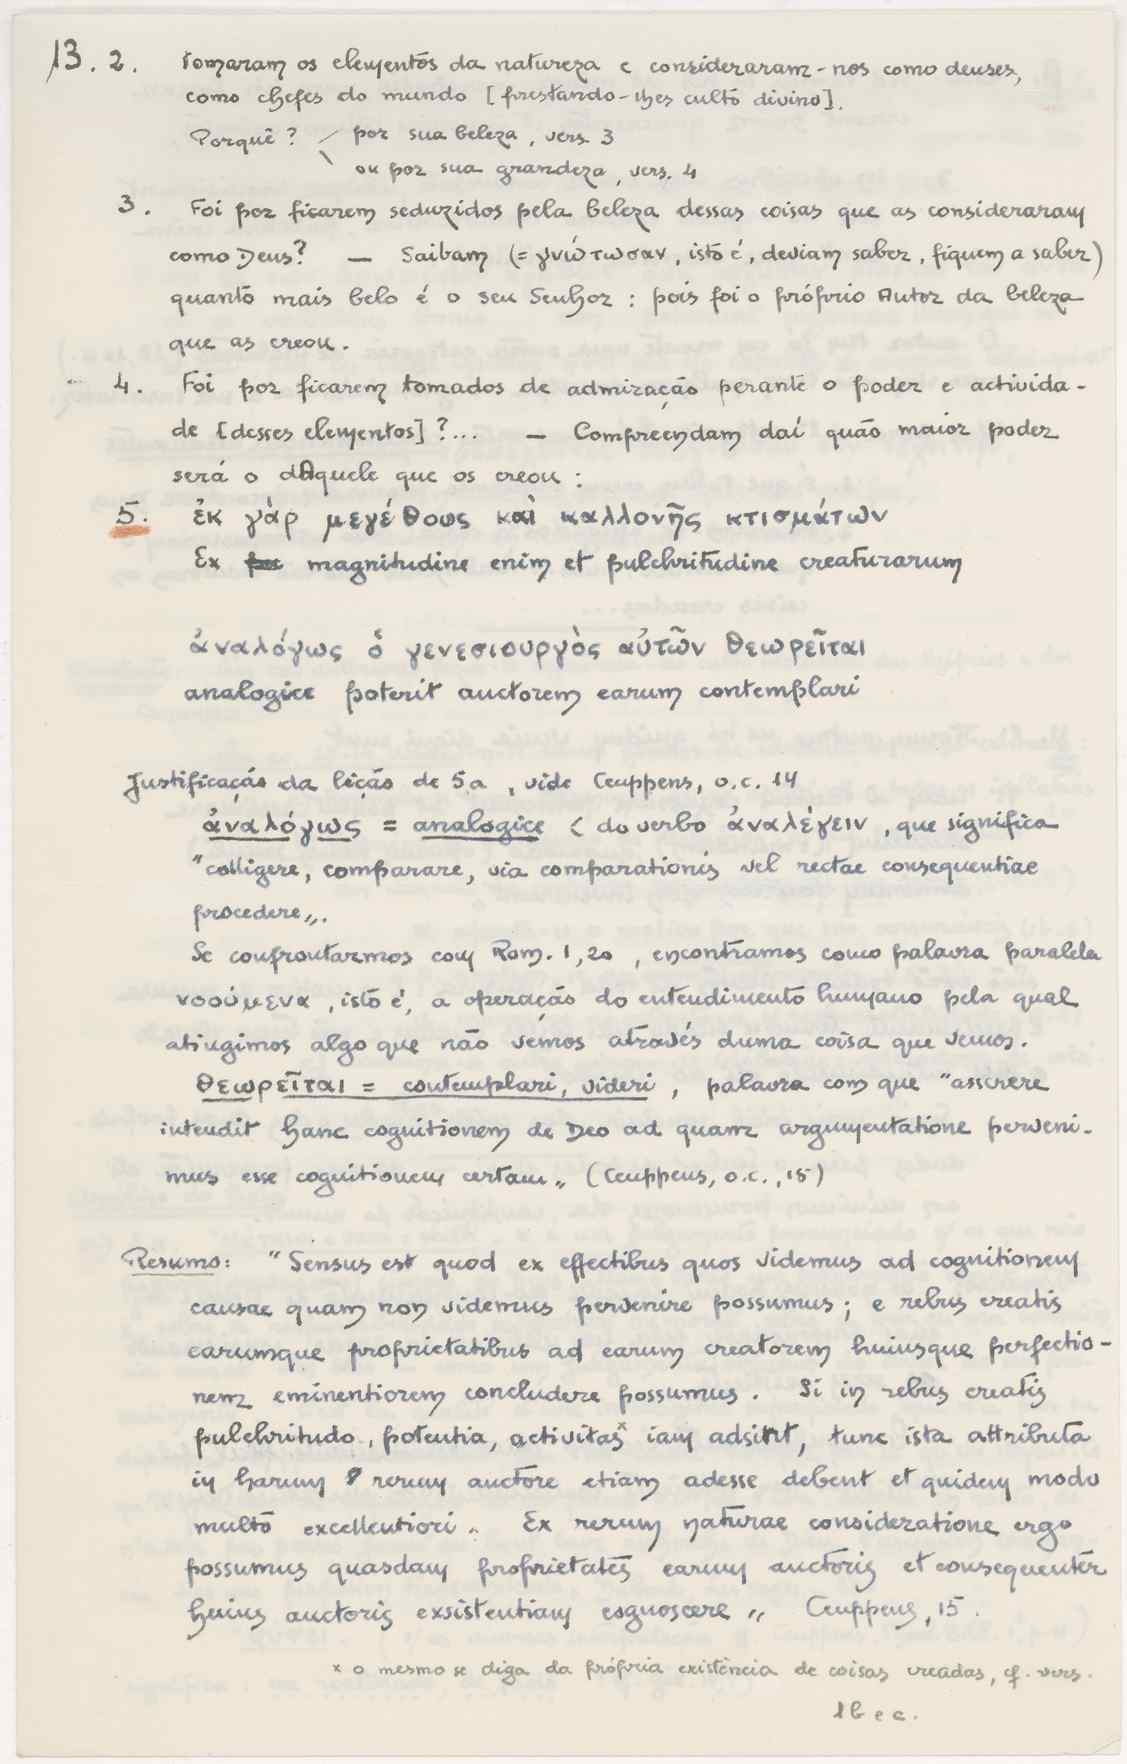 13. 2. tomaram os elementos da natureza e consideraram-nos como deuses,
como chefes do mundo [prestando-lhes culto divino].
Porquê? / por sua beleza, vers. 3
\ ou por sua grandeza, vers. 4
3. Foi por ficarem seduzidos pela beleza dessas coisas que as consideraram
como Deus? — Saibam (= γνώτωσαν, isto é, deviam saber, fiquem a saber)
quanto mais belo é o seu Senhor: pois foi o próprio Autor da beleza
que as creou.
4. Foi por ficarem tomados de admiração perante o poder e activida-
de [desses elementos]?... — Compreendam daí quão maior poder
será o dAquele que os creou:
5. ἐκ γὰρ μεγέθους καὶ καλλονῆς κτισμάτων
Ex magnitudine enim et pulchritudine creaturarum
ἀναλόγως ὁ γενεσιουργὸς αὐτῶν θεωρεῖται
analogice poterit auctorem earum contemplari
Justificação da lição de 5a, vide Ceuppens, o.c. 14
ἀναλόγως = analogice < do verbo ἀναλέγειν, que significa
"colligere, comparare, via comparationis vel rectae consequentiae
procedere„.
Se confrontarmos com Rom. 1,20, encontramos como palavra paralela
νοούμενα, isto é, a operação do entendimento humano pela qual
atingimos algo que não vemos através duma coisa que vemos.
θεωρεῖται = contemplari, videri, palavra com que "asserere
intendit hanc cognitionem de Deo ad quam argumentatione perveni-
mus esse cognitionem certam„ (Ceuppens, o.c., 15)
Resumo: "Sensus est quod ex effectibus quos videmus ad cognitionem
causae quam non videmus pervenire possumus; e rebus creatis
earumque proprietatibus ad earum creatorem huiusque perfectio-
nem eminentiorem concludere possumus. Si in rebus creatis
pulchritudo, potentia, activitas× iam adsint, tunc ista attributa
in harum rerum auctore etiam adesse debent et quidem modo
multo excellentiori„. Ex rerum naturae consideratione ergo
possumus quasdam proprietates earum auctoris et consequenter
huius auctoris exsistentiam cognoscere„ Ceuppens, 15.
× o mesmo se diga da própria existência de coisas creadas, cf. vers.
1b e c.